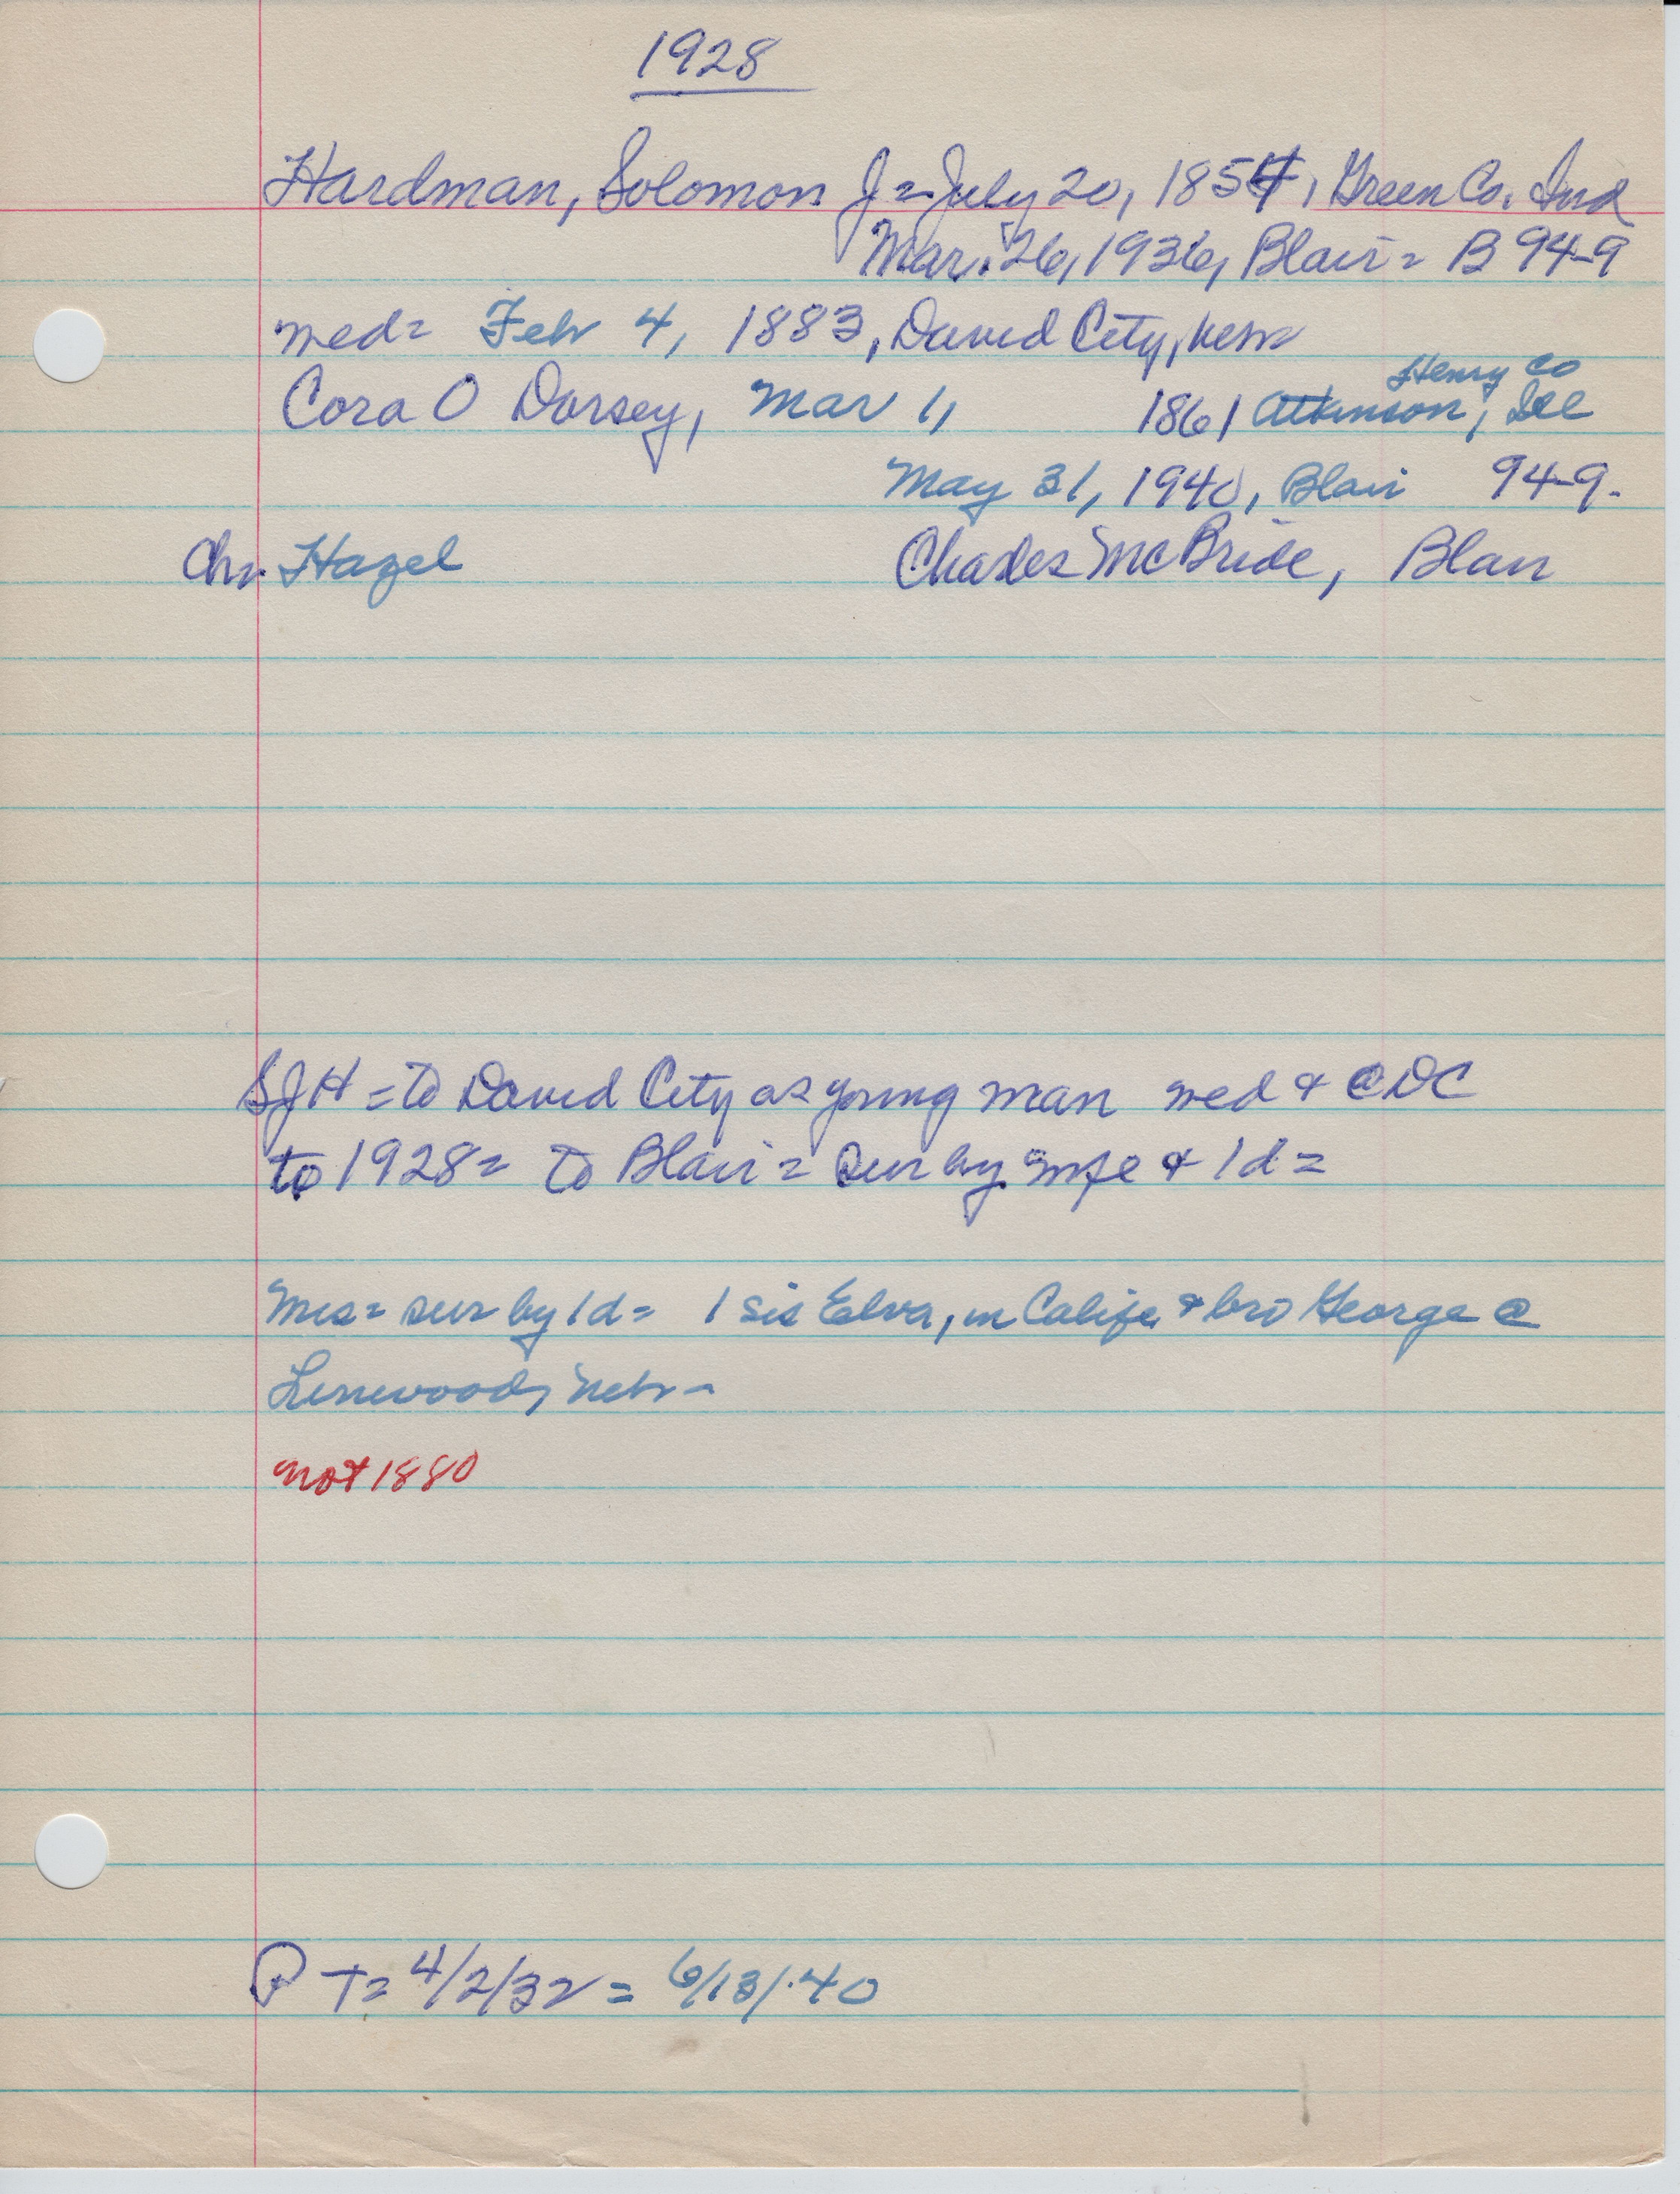 1928
Hardman, Solomon J = July 20, 1854, Green Co. Ind
Mar. 26, 1936, Blair = B 94-9
med = Feb 4, 1883, David City, Nebr
Henry Co
Cora O Dorsey, Mar 1, 1861 Atkinson, Ill
May 31, 1940, Blair 94-9.
Chr. Hazel Charles McBride, Blair
SJH = to David City as young man med & @ DC
to 1928 = to Blair = sur by wife & 1d =
Mrs = sur by 1d = 1 sis Elva, in Calif. & bro George @
Linwood, Nebr -
not 1880
P T = 4/2/32 = 6/13/40